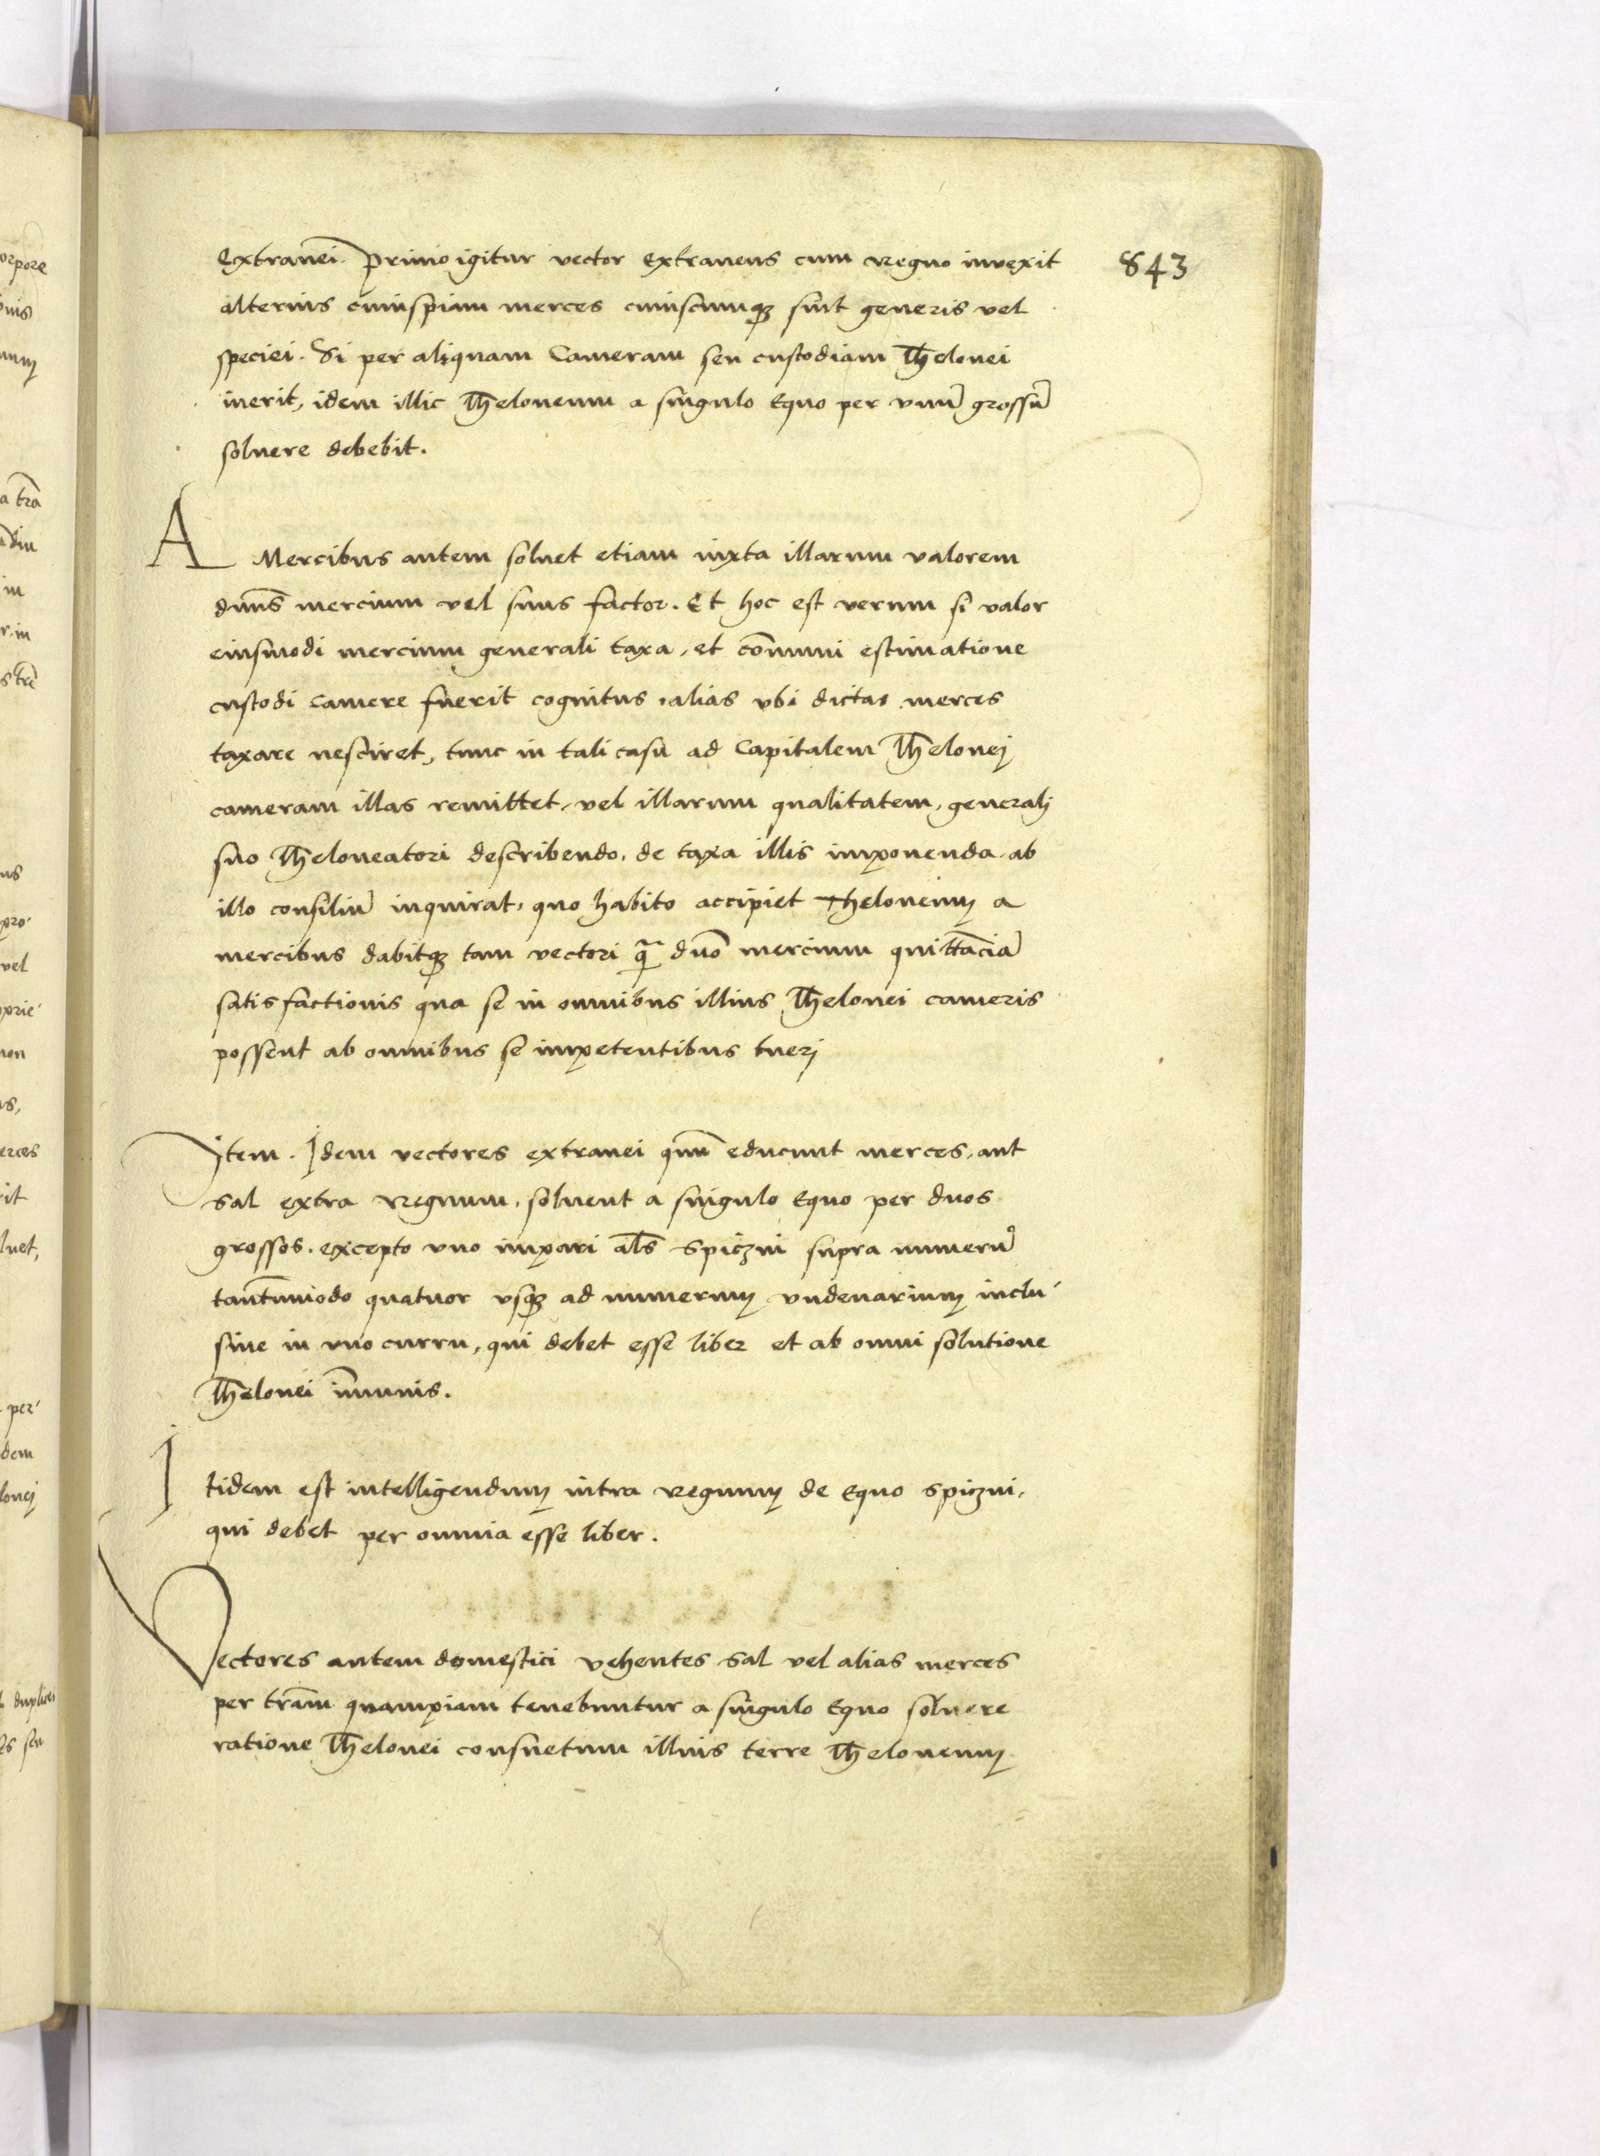 843
Extranei. Primo igitur vector extraneus cum regno invexit
alterius cuiuspiam merces cuiuscumq; sint generis vel
speciei. Si per aliquam Cameram seu custodiam Thelonei
inerit, idem illic Theloneum a singulo Equo per vnū grossū
soluere debebit.
A Mercibus autem soluet etiam iuxta illarum valorem
dnūs mercium vel suus factor. Et hoc est verum si valor
eiusmodi mercium generali taxa, et cōmuni estimatione
custodi camere fuerit cognitus, alias vbi dictas merces
taxare nesciret, tunc in tali casu ad Capitalem Thelonej
cameram illas remittet, vel illarum qualitatem, generalj
suo Theloneatori describendo, de taxa illis imponenda, ab
illo consiliū inquirat, quo habito accipiet Theloneum a
mercibus dabitq; tam vectori q̄ dnō mercium quittāciā
satisfactionis qua se in omnibus illius Thelonei cameris
possent ab omnibus se impetentibus tuerj
Item. Idem vectores extranei quū educunt merces, aut
sal extra Regnum, soluent a singulo Equo per duos
grossos. excepto vno impari al̄s spiczni supra numerū
tantūmodo quatuor vsq; ad numerum vndenarium inclu-
siue in vno curru, qui debet esse liber et ab omni solutione
Thelonei īmunis.
Itidem est intelligendum intra regnum de Equo spiczni,
qui debet per omnia esse liber.
Vectores autem domestici vehentes sal vel alias merces
per trām quampiam tenebuntur a singulo Equo soluere
ratione Thelonei consuetum illius terre Theloneum